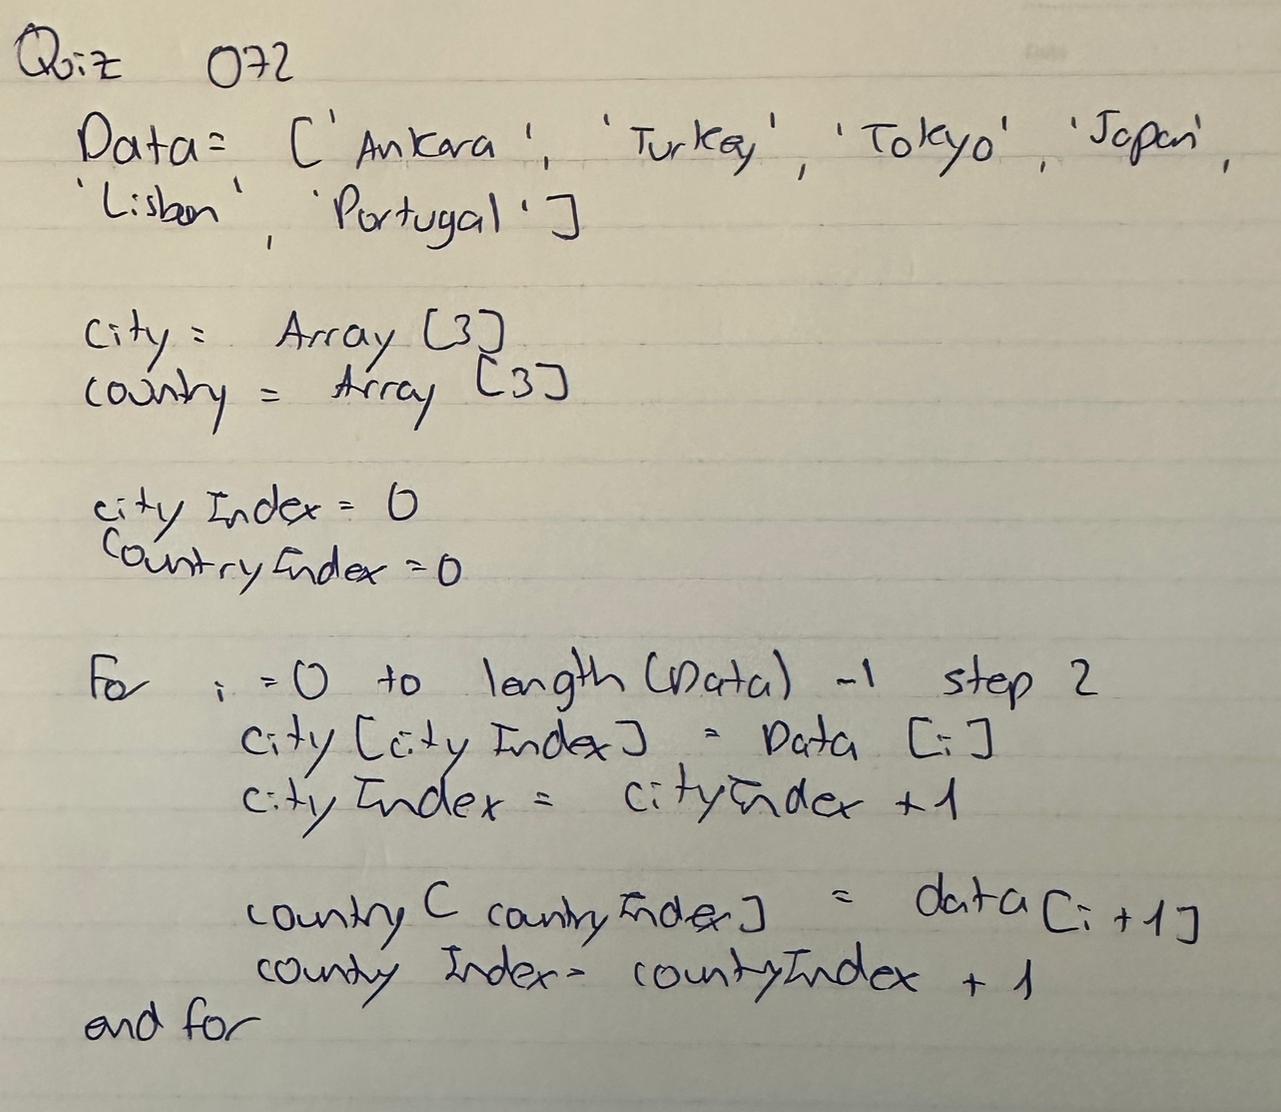 Quiz 072
Data = ['Ankara', 'Turkey', 'Tokyo', 'Japan',
'Lisbon', 'Portugal']
city = Array [3]
country = Array [3]
city Index = 0
Country Index = 0
For i = 0 to length (Data) -1 step 2
city [city Index] = Data [i]
city Index = cityIndex + 1
country [country Index] = data [i + 1]
county Index = countyIndex + 1
end for